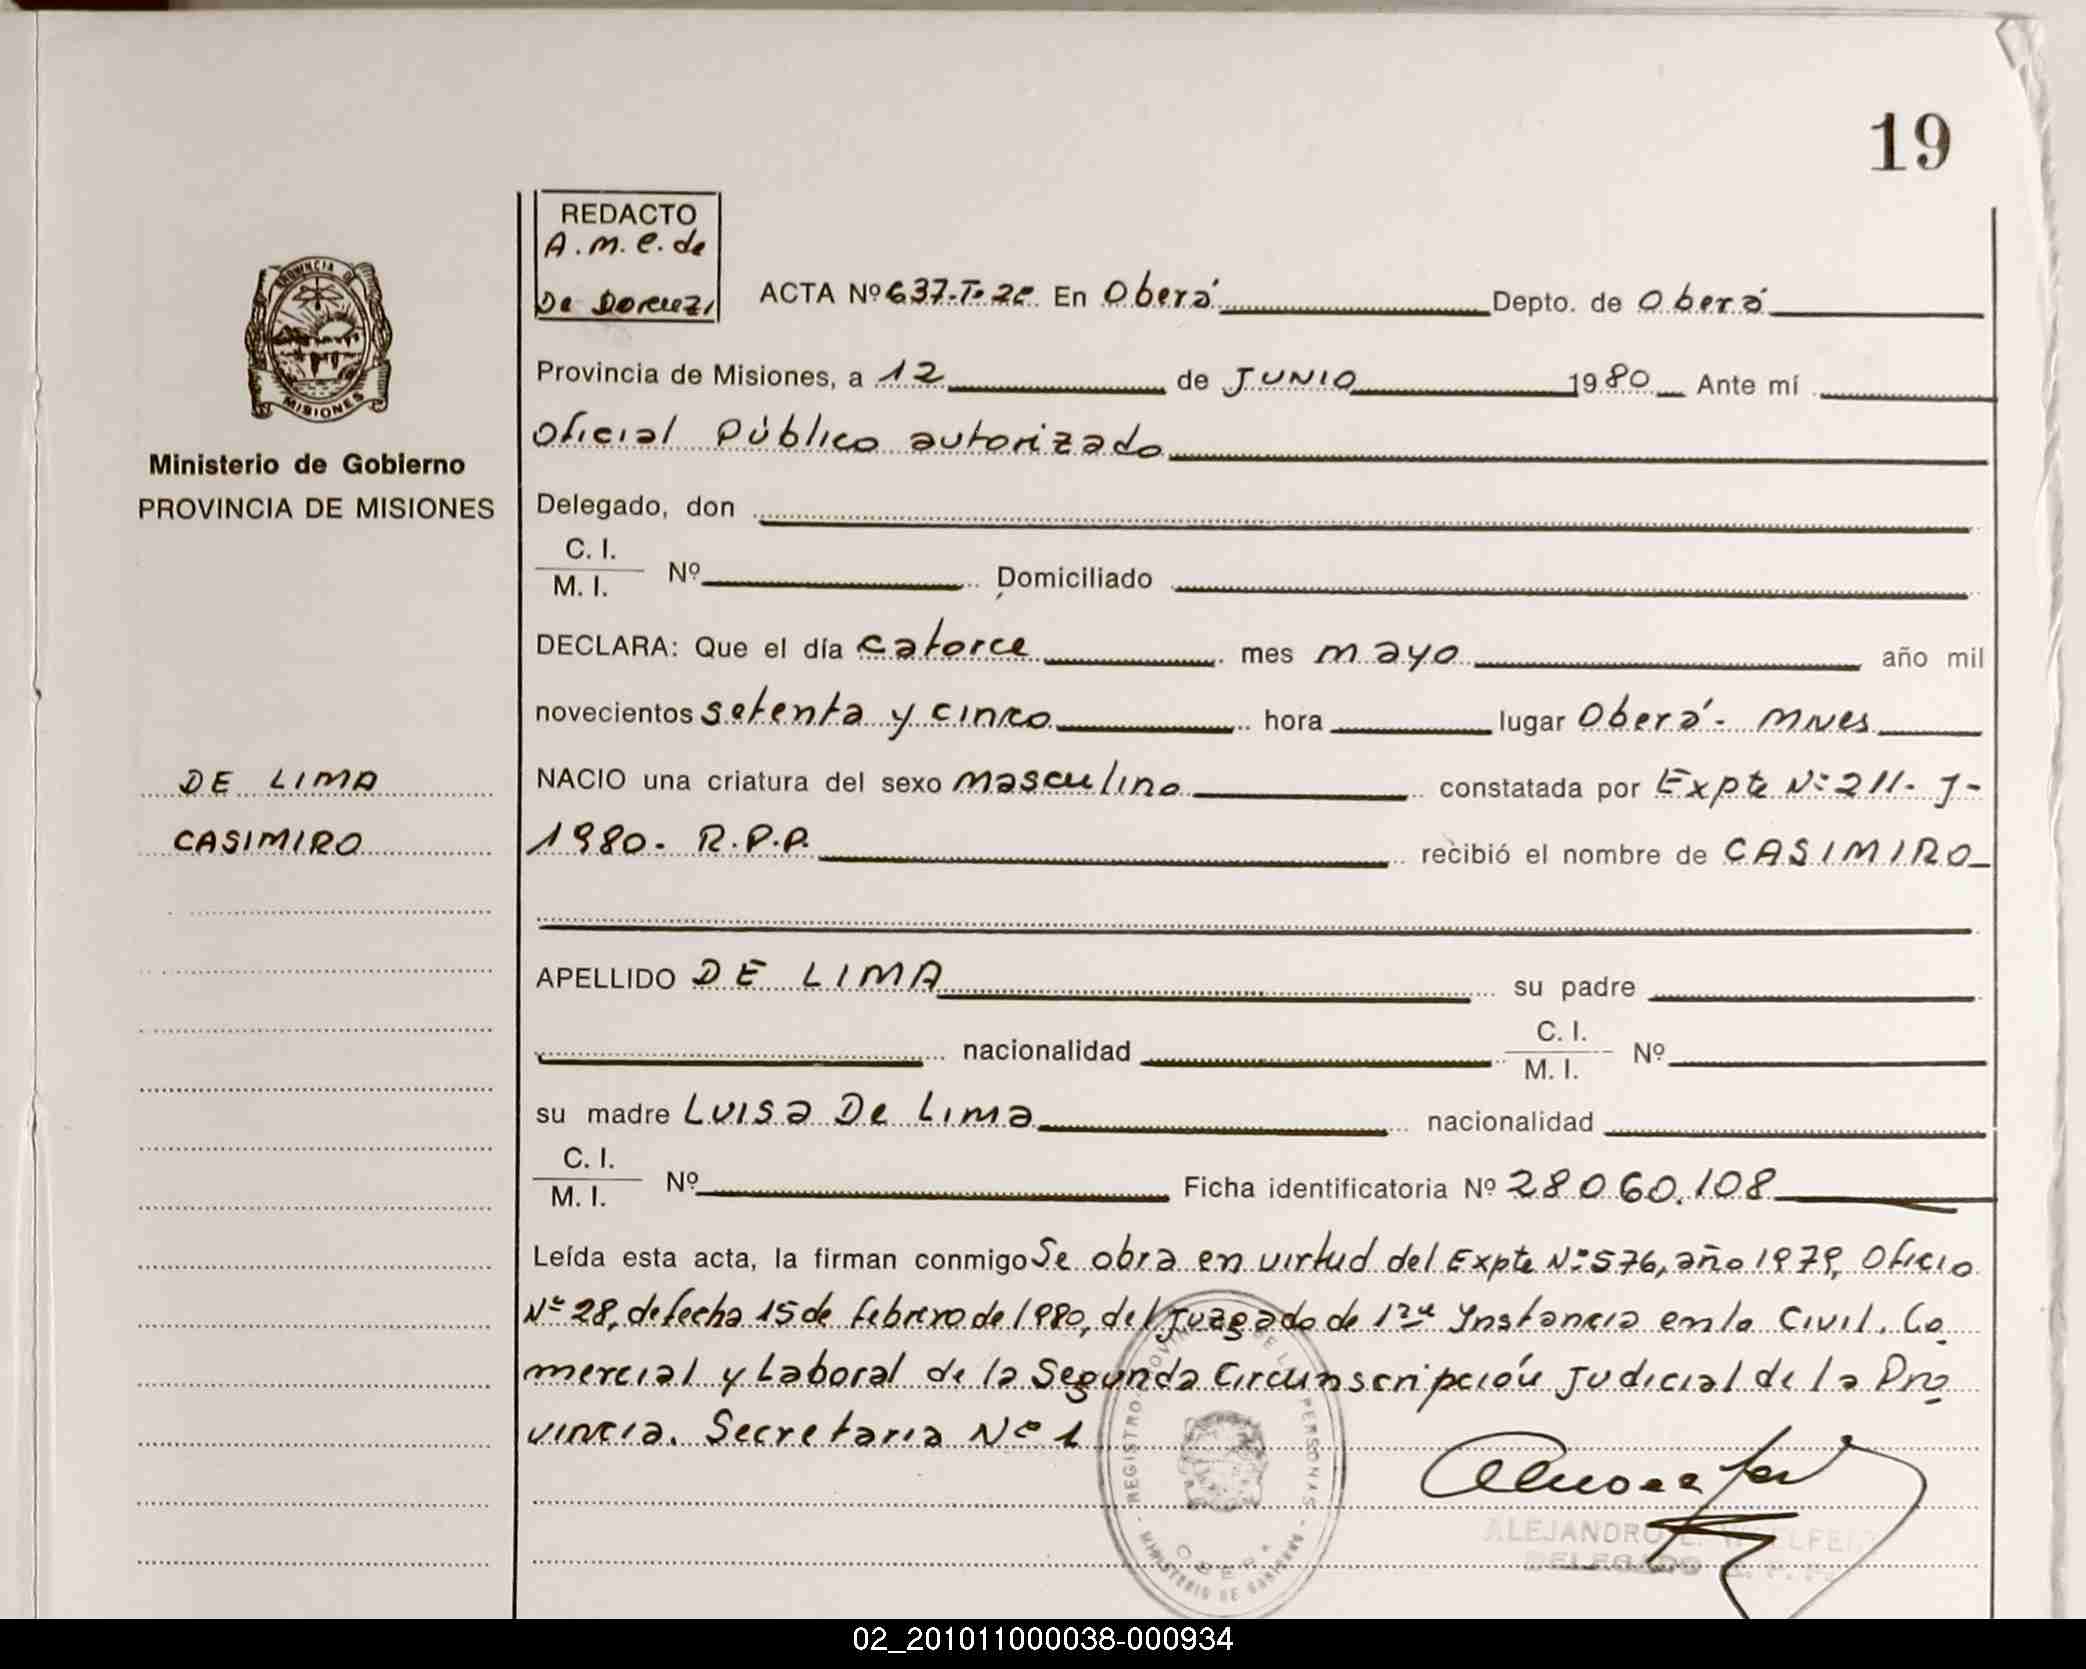 19
REDACTO
A.M.E. de
De Dorenzi
PROVINCIA DE
MISIONES
Ministerio de Gobierno
PROVINCIA DE MISIONES
DE LIMA
CASIMIRO
ACTA Nº 637-Tº 2º En Oberá Depto. de Oberá
Provincia de Misiones, a 12 de JUNIO 1980 Ante mí
Oficial Público autorizado
Delegado, don
C. I.
M. I. Nº Domiciliado
DECLARA: Que el día catorce mes mayo año mil
novecientos setenta y cinco hora lugar Oberá - Mnes
NACIO una criatura del sexo masculino constatada por Expte Nº 211- J-
1980- R.P.P. recibió el nombre de CASIMIRO
APELLIDO DE LIMA su padre
nacionalidad C. I.
M. I. Nº
su madre Luisa De Lima nacionalidad
C. I.
M. I. Nº Ficha identificatoria Nº 28060.108
Leída esta acta, la firman conmigo Se obra en virtud del Expte Nº 576, año 1979, Oficio
Nº 28, de fecha 15 de febrero de 1980, del Juzgado de 1ra Instancia en lo Civil, Co
mercial y Laboral de la Segunda Circunscripción Judicial de la Pro
vincia. Secretaria Nº 1
REGISTRO DE LAS PERSONAS
MINISTERIO DE GOBIERNO
OBERA
ALEJANDRO
DELEGADO
02_201011000038-000934